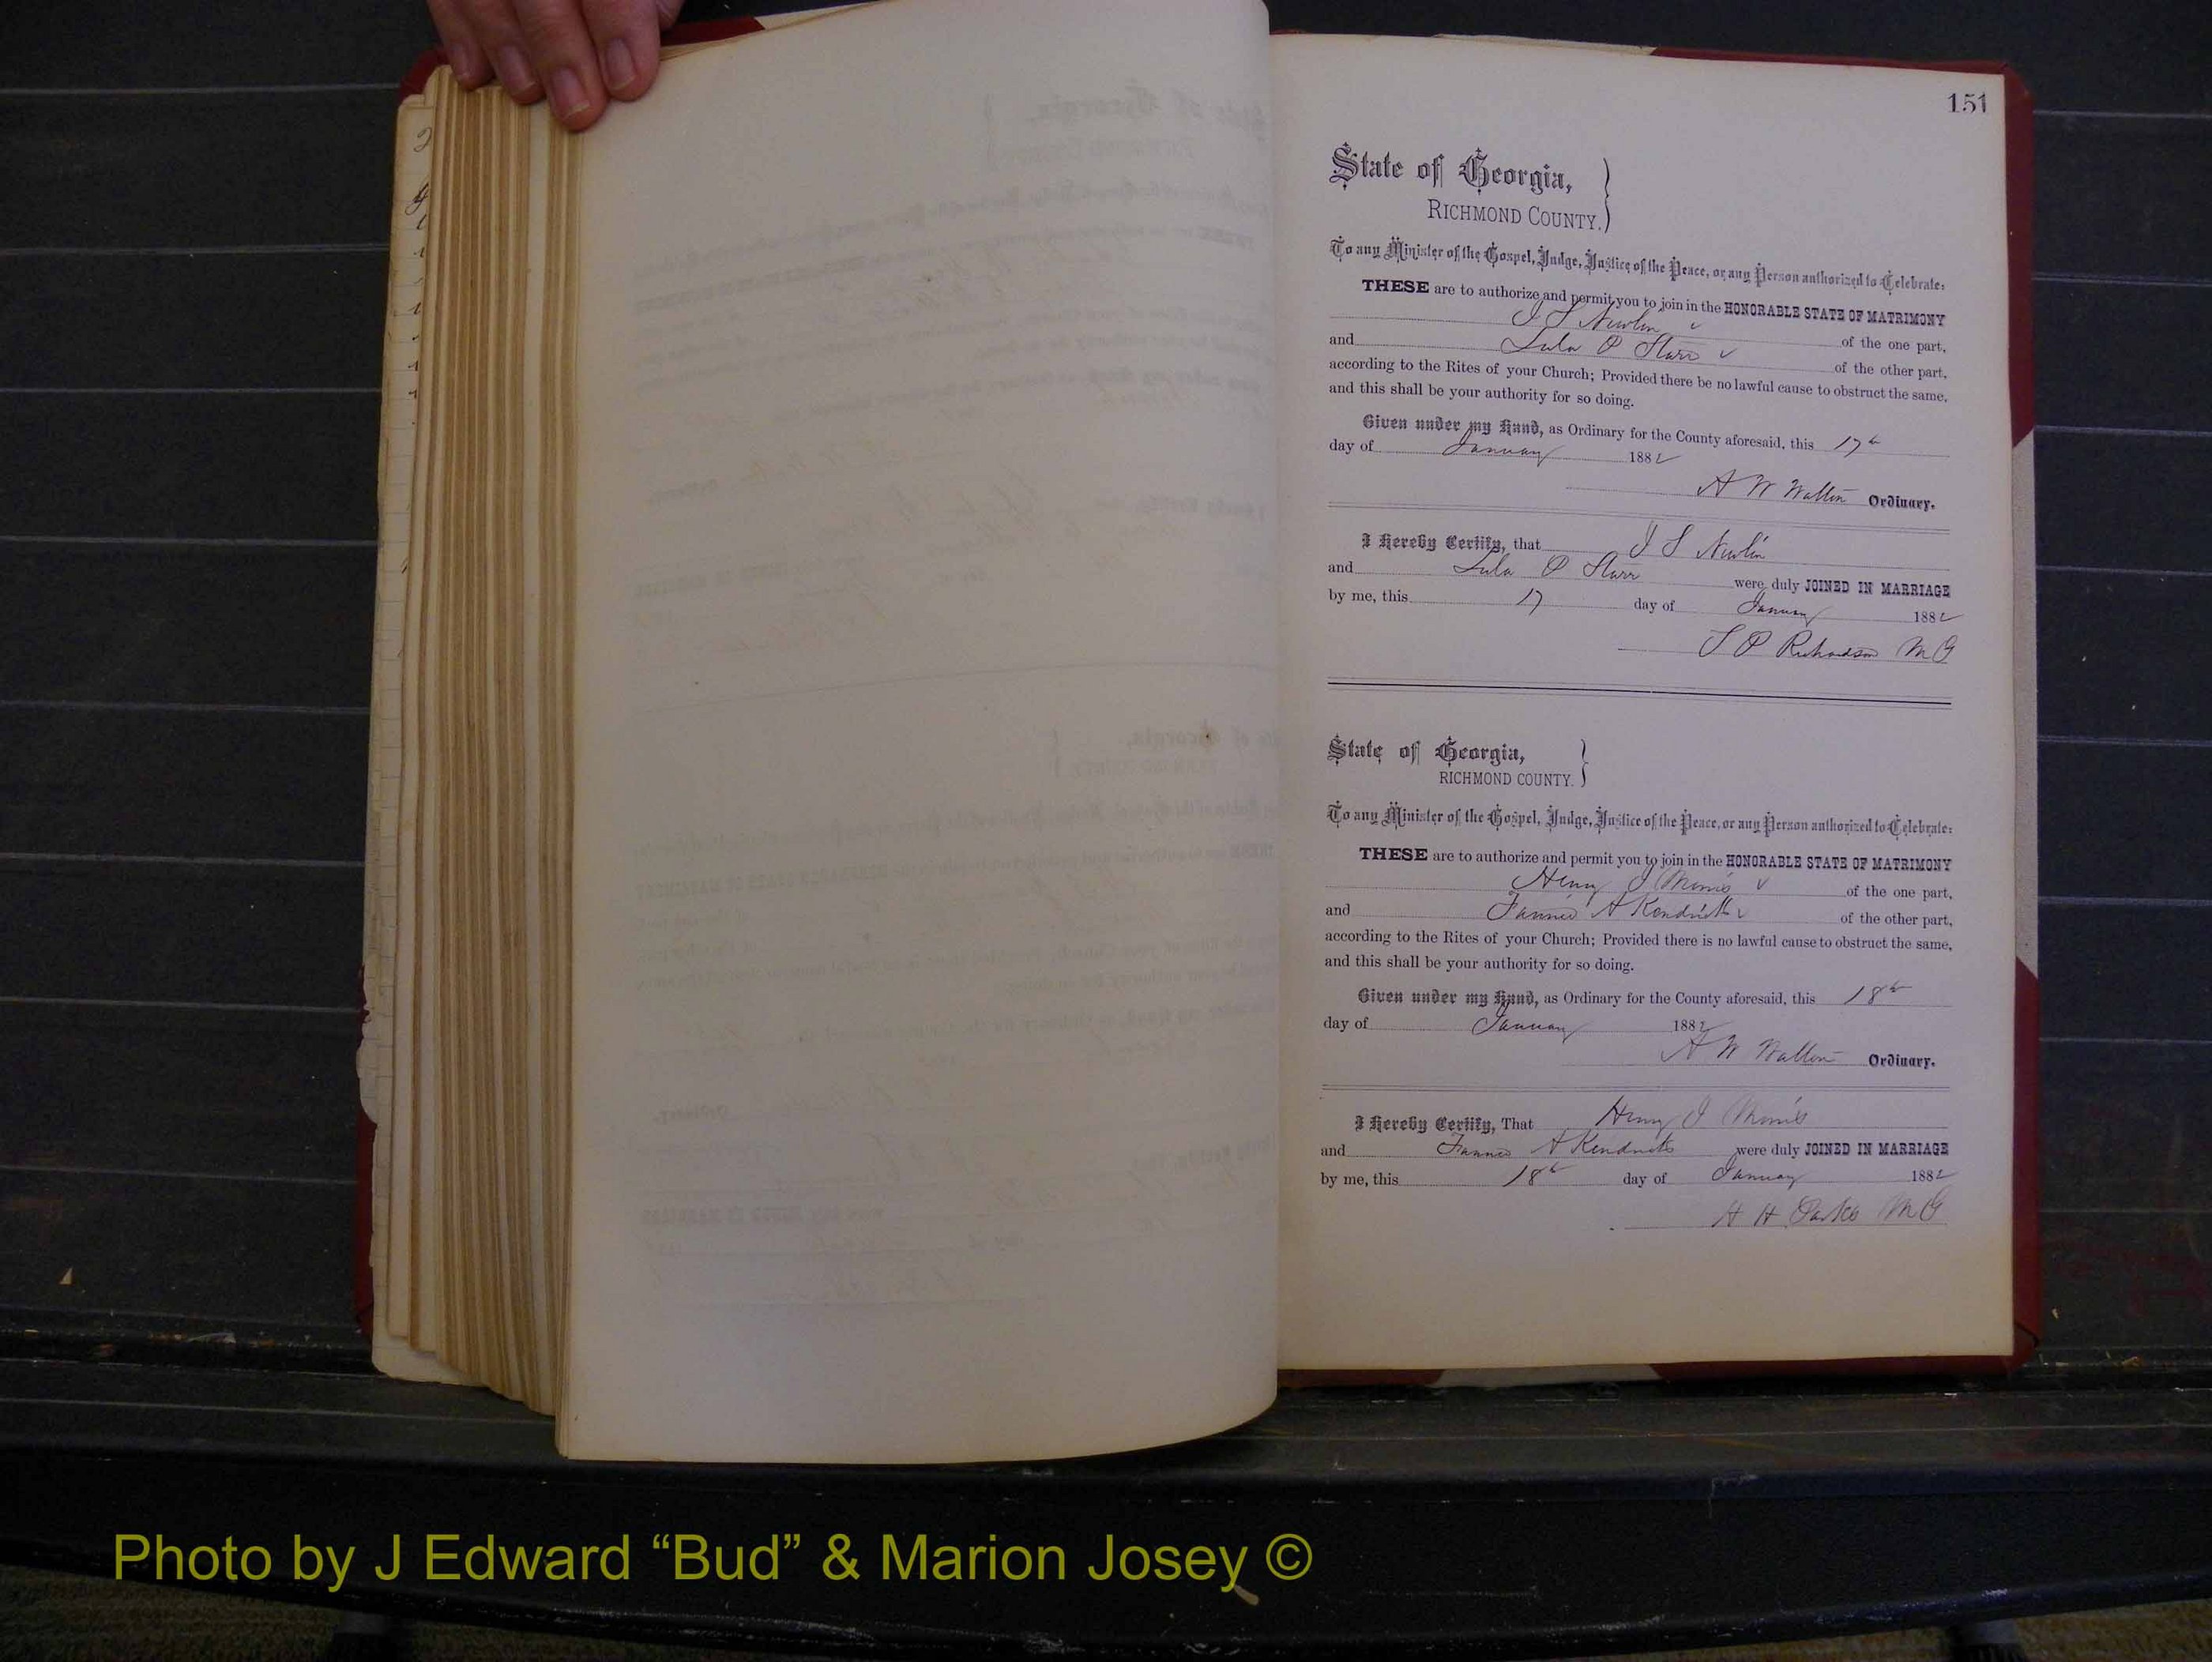 151
State of Georgia,
RICHMOND COUNTY.
To any Minister of the Gospel, Judge, Justice of the Peace, or any Person authorized to Celebrate:
THESE are to authorize and permit you to join in the HONORABLE STATE OF MATRIMONY
J S Newlin of the one part,
and Lula P Starr of the other part,
according to the Rites of your Church; Provided there be no lawful cause to obstruct the same,
and this shall be your authority for so doing.
Given under my Hand, as Ordinary for the County aforesaid, this 17th
day of January 1882
A W Walton Ordinary.
I Hereby Certify, that J S Newlin
and Lula P Starr were duly JOINED IN MARRIAGE
by me, this 17 day of January 1882
S P Richardson M G
State of Georgia,
RICHMOND COUNTY.
To any Minister of the Gospel, Judge, Justice of the Peace, or any Person authorized to Celebrate:
THESE are to authorize and permit you to join in the HONORABLE STATE OF MATRIMONY
Henry J Morris of the one part,
and Fannie A Kendrick of the other part,
according to the Rites of your Church; Provided there is no lawful cause to obstruct the same,
and this shall be your authority for so doing.
Given under my Hand, as Ordinary for the County aforesaid, this 18th
day of January 1882
A W Walton Ordinary.
I Hereby Certify, That Henry J Morris
and Fannie A Kendrick were duly JOINED IN MARRIAGE
by me, this 18th day of January 1882
H H Parks M G
Photo by J Edward “Bud” & Marion Josey ©